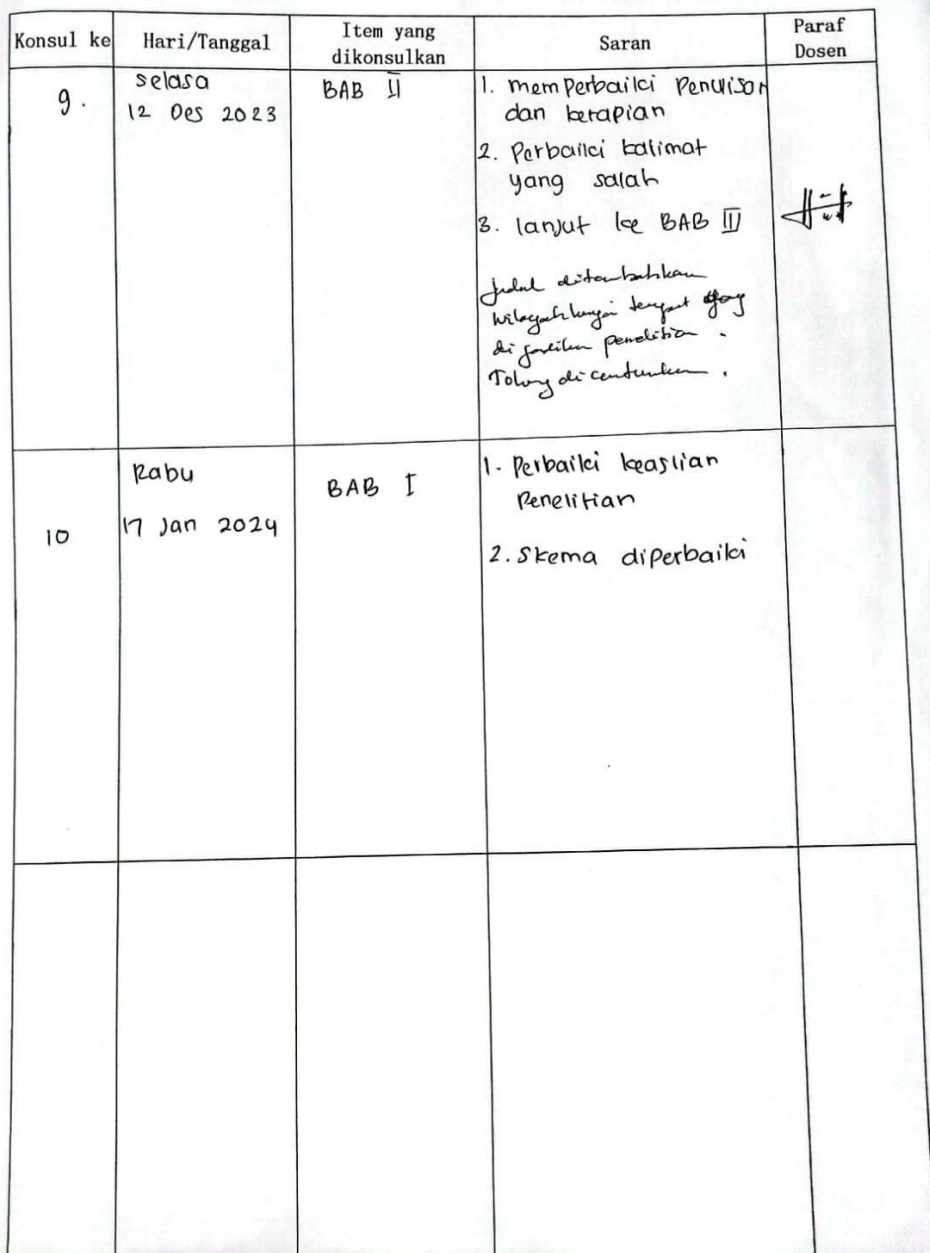 Konsul ke Hari/Tanggal Item yang dikonsulkan Saran Paraf Dosen
9. selasa BAB II 1. memperbaiki Penulisan
12 Des 2023 dan kerapian
2. Perbaiki kalimat
yang salah
3. lanjut ke BAB III
Judul ditambahkan
wilayah tempat yang
di penelitian.
Tolong di cantumkan.
10 Rabu BAB I 1. Perbaiki keaslian
17 Jan 2024 Penelitian
2. Skema diperbaiki